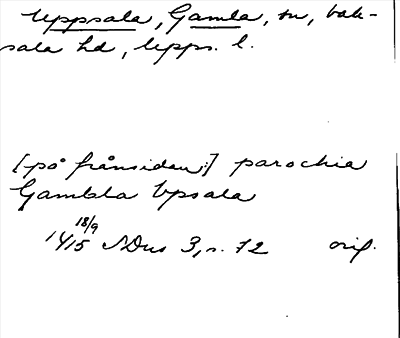 Uppsala, Gamla, sn, Vak-
sala hd, Upps. l.
[på frånsidan:] parochia
Gambla Vpsala
18/9
1415 SDns 3, s. 72 orig.